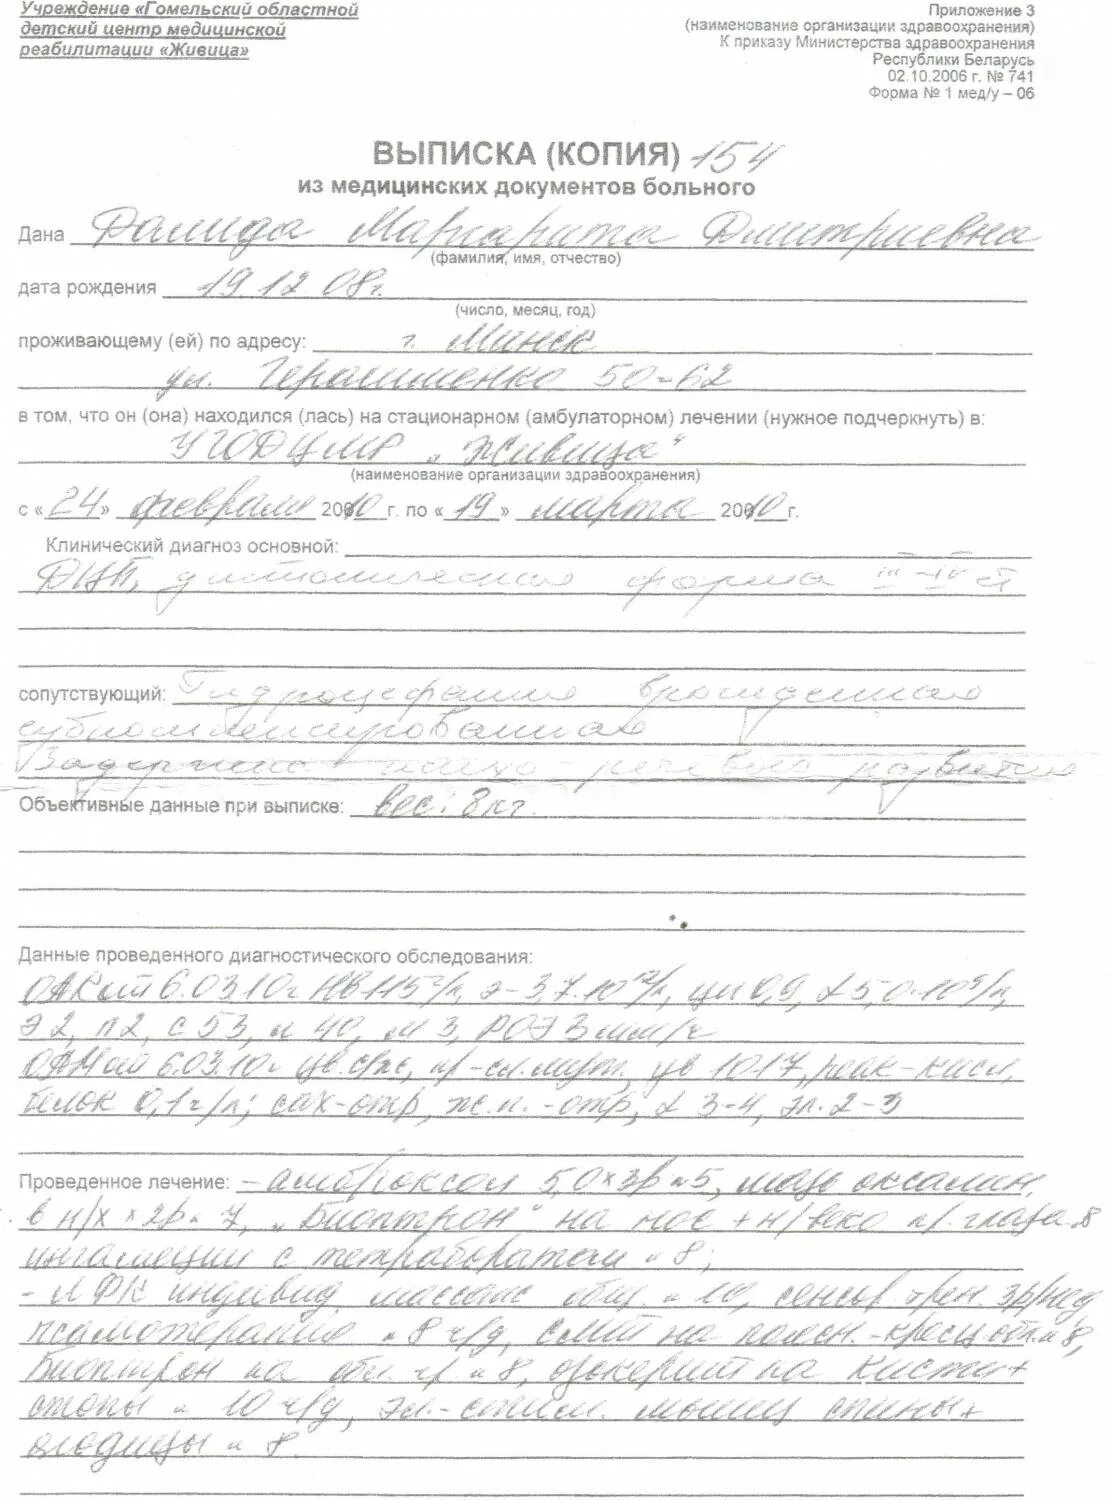 Учреждение «Гомельский областной
детский центр медицинской
реабилитации «Живица»
Приложение 3
(наименование организации здравоохранения)
К приказу Министерства здравоохранения
Республики Беларусь
02.10.2006 г. № 741
Форма № 1 мед/у – 06
ВЫПИСКА (КОПИЯ) 154
из медицинских документов больного
Дана Далида Маргарита Дмитриевна
(фамилия, имя, отчество)
дата рождения 19.12.08г.
(число, месяц, год)
проживающему (ей) по адресу: г. Минск
ул. Герасименко 50-62
в том, что он (она) находился (лась) на стационарном (амбулаторном) лечении (нужное подчеркнуть) в:
УГОДЦМР „Живица“
(наименование организации здравоохранения)
с «24» февраля 2010 г. по «19» марта 2010 г.
Клинический диагноз основной:
ДЦП, дистоническая форма III-IV ст
сопутствующий: Гидроцефалия врожденная
субкомпенсированная
Задержка речевого развития
Объективные данные при выписке: вес: 8 кг.
Данные проведенного диагностического обследования:
ОАК от 6.03.10г НВ 115 г/л, э- 3,7·10¹²/л, цп 0,9, L 5,0·10⁹/л,
Э2, п2, с 53, л 40, м 3, РОЭ 3 мм/ч
ОАМ от 6.03.10г цв. с/ж, пр-сл.мут. ув 1017, реак-кисл,
белок 0,1 г/л; сах-отр, ж.п.-отр, L 3-4, эп. 2-3
Проведенное лечение: - амброксол 5,0 х 3р №5, мазь оксолин.
в н/х х 2р № 7, „Биоптрон“ на нос + н/веко пр. глаза №8
ингаляции с тетраборатом № 8;
- ЛФК индивид. массаж общ. № 10, сенсор. трен.
псамотерапия № 8 ч/д, СМТ на поясн.-кресц. обл. № 8,
Биоптрон на № 8, озокерит на кисти +
стопы № 10 ч/д, эл.-стим. мышц спины +
ягодицы № 8.